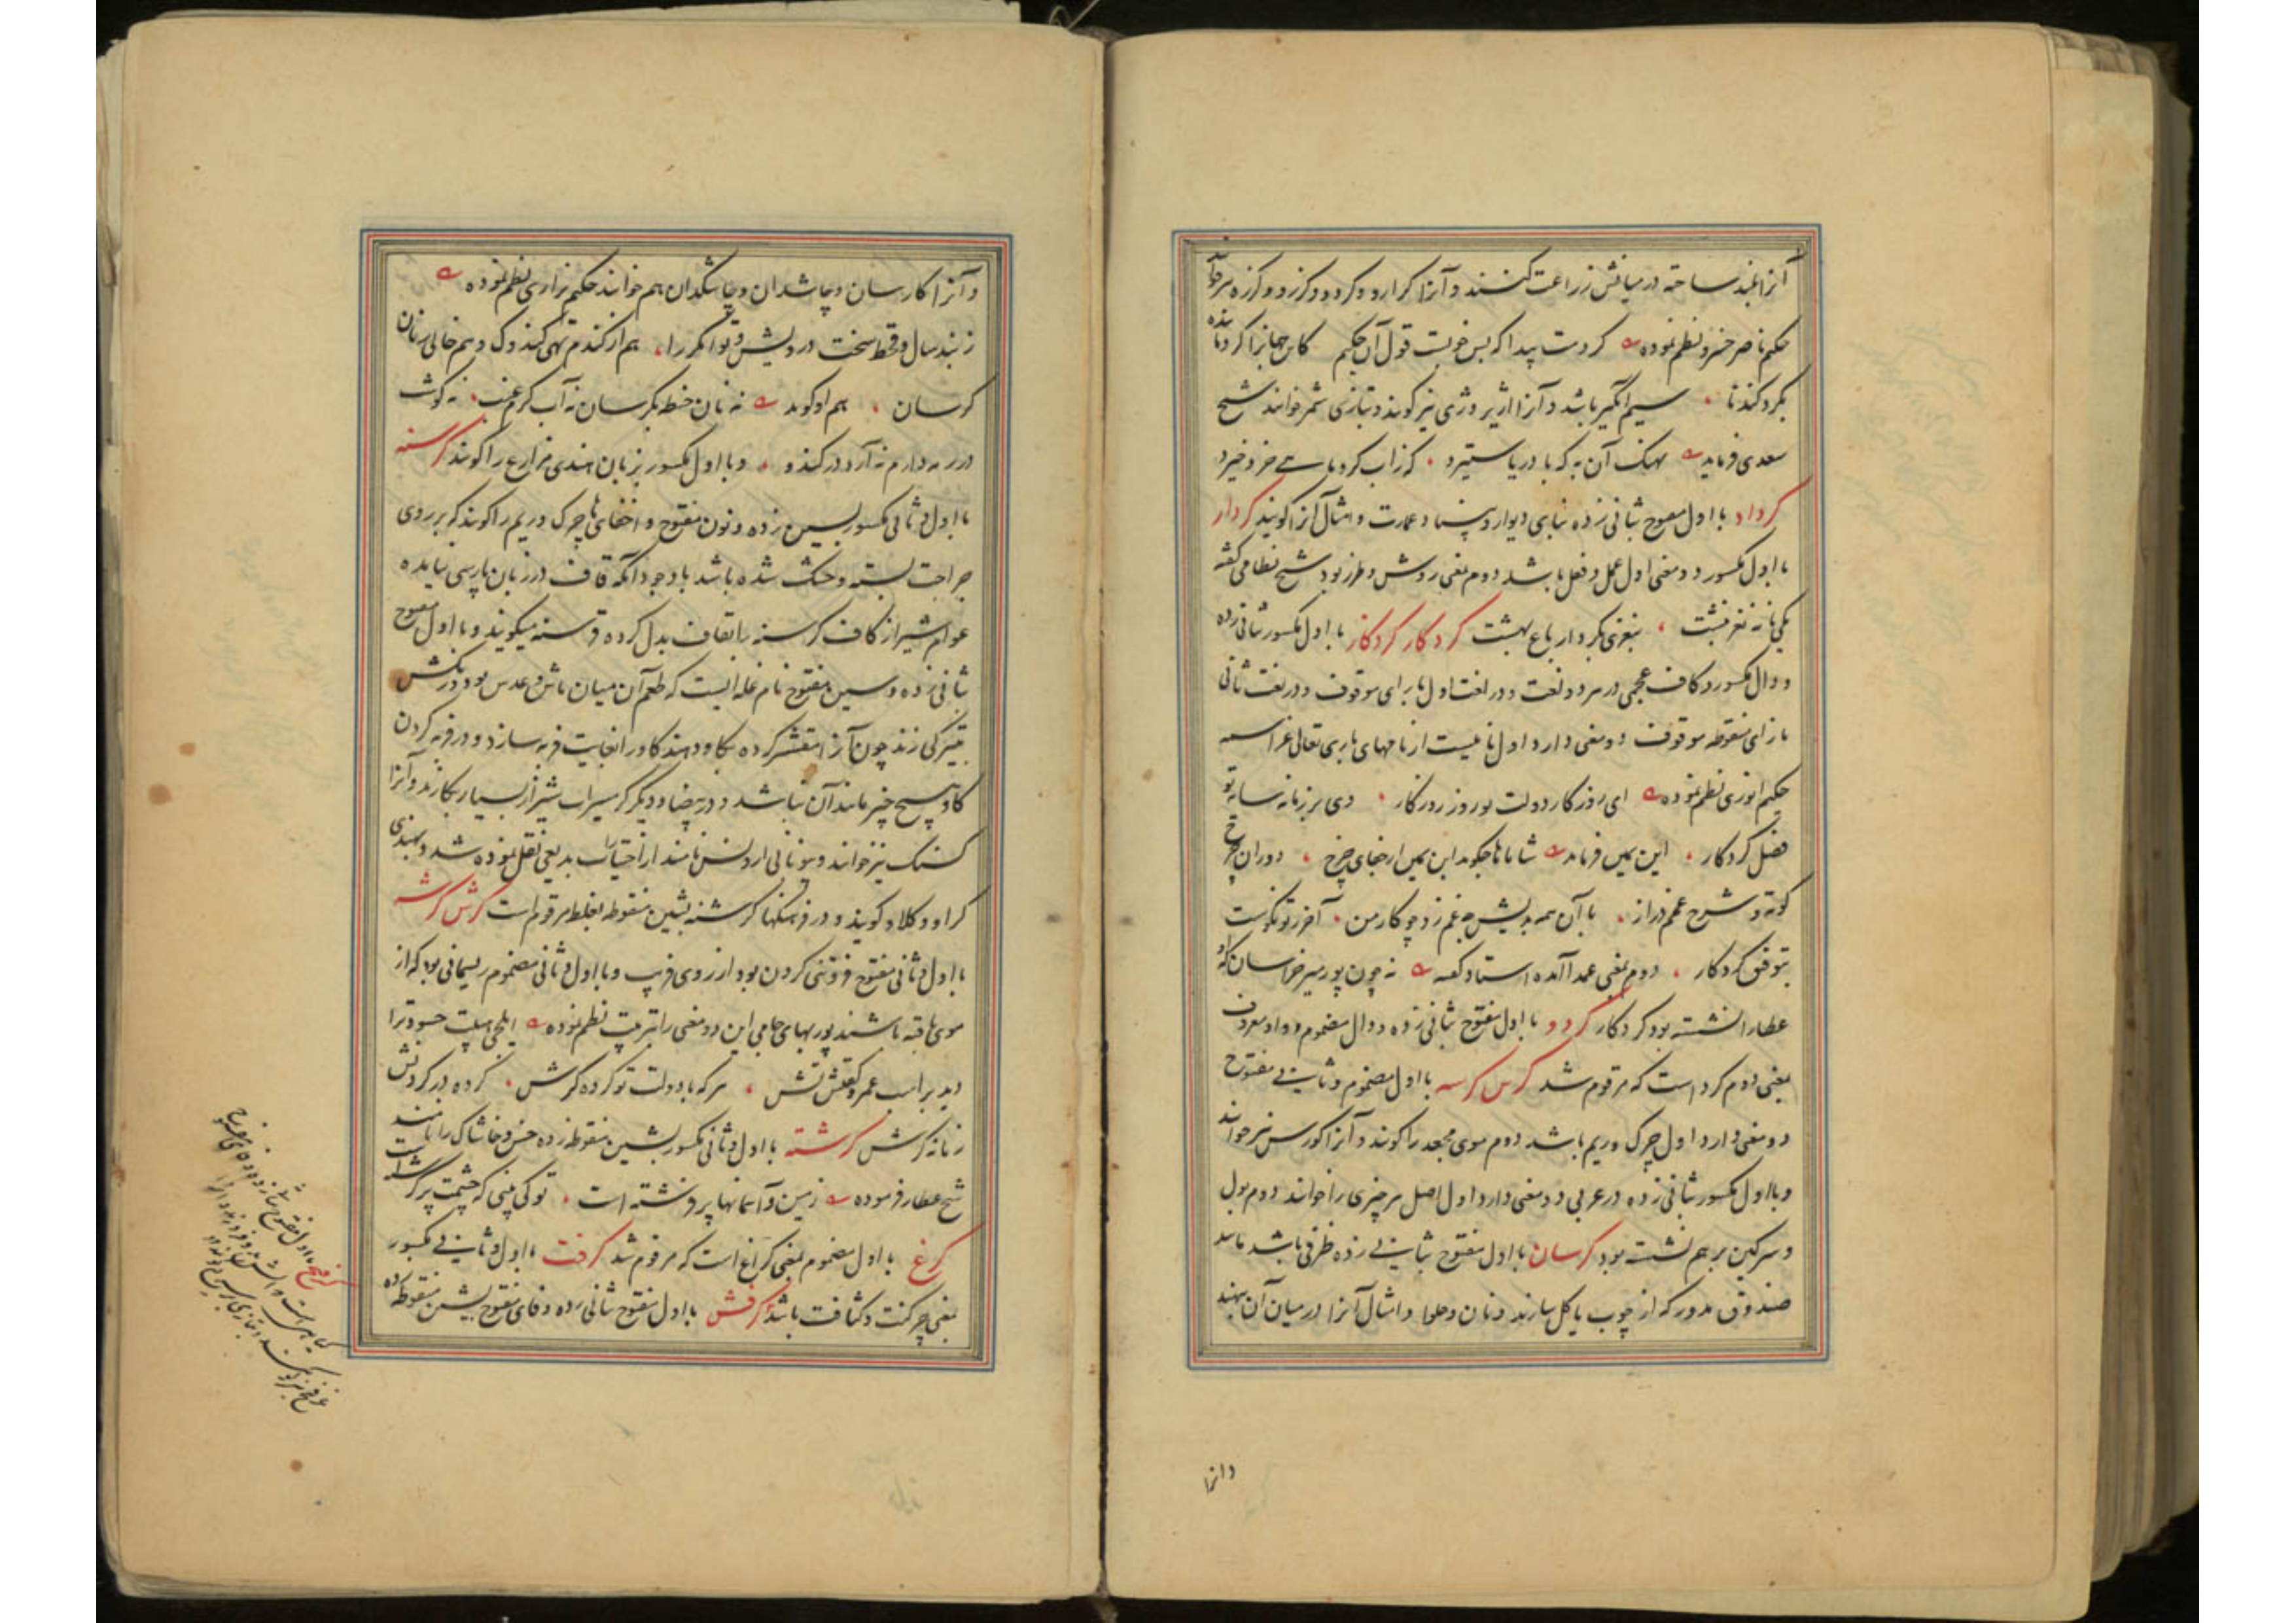 آنرا بلند ساخته در میانش زراعت کنند و آنرا کرارو و کردو و کرزو و کرزه نیز خوانند
حکیم ناصر خسرو نظم نموده کردت پیدا که بس خوبست قول آن حکیم کاین جهانرا کرد ماننده
بکرد کندنا سیم ماگیر باشد و آنرا اژیر و ژی نیز گویند و بتازی شمر خوانند شیخ
سعدی فرماید نهنک آن به که با دریا ستیزد کز آب کرد ماهی خرد خیزد
کرداد با اول مفتوح بثانی زده بنای دیوار و بنیاد عمارت و امثال آنرا گویند کردار
با اول مکسور دو معنی اول عمل و فعل باشد دوم بمعنی روش و طرز بود شیخ نظامی گفته
یکی خانه نغز نبشت بنغزی بکردار باغ بهشت کردکار کردکاز با اول مکسور بثانی زده
و دال مکسور و کاف عجمی در هر دو لغت و در لغت اول با رای موقوف و در لغت ثانی
با زای منقوطه موقوف دو معنی دارد اول نامیست از نامهای باری تعالی عز اسمه
حکیم انوری نظم نموده ای روزکار دولت تو روز روزکار وی بر زمانه سایه تو
فضل کردکار ابن یمین فرماید شاها تا چگوید ابن یمین از جفای چرخ دوران چرخ
کوته و شرح غمم دراز با آن همه بدیشی چو غم زد چو کار من آخر نکو تست
بتوفیق کردکار دوم بمعنی عمدا آمده استاد گفته نه چون پور میر خراسان که او
عطا را نشسته بود کردکار کردو با اول مفتوح بثانی زده و دال مضموم و واو معروف
بمعنی دوم کرد است که مرقوم شد کرس کرسه با اول مضموم و ثانی مفتوح
دو معنی دارد اول چرک و ریم باشد دوم موی مجعد را گویند و آنرا کورس نیز خوانند
و با اول مکسور بثانی زده در عربی دو معنی دارد اول اصل هر چیزی را خوانند دوم بول
و سرکین بر هم نشسته بود کرسان با اول مفتوح بثانی زده ظرفی باشد مانند
صندوق مدور که از چوب یا گل سازند و نان و حلوا و امثال آنرا در میان آن نهند
وانرا
و آنرا کارسان و چاشدان و چاشکدان هم خوانند حکیم نزاری نظم نموده
ز بند سال و قحط سخت درویش و توانگر را هم از گندم تهی کندوک و هم خالی ز نان
کرسان هم او گوید نه نان خنطه بکرسان نه آب کرم نه گوشت
در نه دارم نه آرد در کندو و با اول مکسور بزبان هندی مزارع را گویند کرسنه
با اول و ثانی مکسور بسین زده و نون مفتوح و اخفای ها چرک و ریم را گویند که بر روی
جراحت بسته و خشک شده باشد با وجود آنکه قاف در زبان پارسی نیامده
عوام شیراز کاف کرسنه را بقاف بدل کرده قرسنه میگویند و با اول مفتوح
بثانی زده و سین مفتوح نام غله ایست که طعم آن میان ماش و عدس بود و رنگش
بتیرگی زند چون آنرا مقشر کرده بگاو دهند گاو را بغایت فربه سازد و در فربه کردن
گاو هیچ چیز مانند آن نباشد و در بیضا و دیگر گرمسیرات شیراز بسیار بکارند و آنرا
کسنک نیز خوانند و بیونانی اروبس نامند از اختیارات بدیعی نقل نموده شد و بهندی
کراو و کلاو گویند و در فرهنگها کرشنه بشین منقوطه بغلط مرقوم است کرش کرشه
با اول و ثانی مفتوح فروتنی کردن بود از روی فریب و با اول و ثانی مضموم ریسمانی بود که از
موی بافته باشند پوربهای جامی این دو معنی را بترتیب نظم نموده
دید بر اسب عمرو هر که با دولت تو کرده کرش کرده در گردنش
زمانه کرش کرشته با اول و ثانی مکسور بشین منقوطه زده خس و خاشاک را نامند
شیخ عطار فرموده زمین و آسمانها پر فرشته است تو کی بینی که چشمت پر کرشته است
کرغ با اول مضموم بمعنی کراغ است که مرقوم شد کرفت با اول و ثانی مکسور
بمعنی چرکنت و کثافت باشد کرفش با اول مفتوح بثانی زده و فای مفتوح بشین منقوطه زده